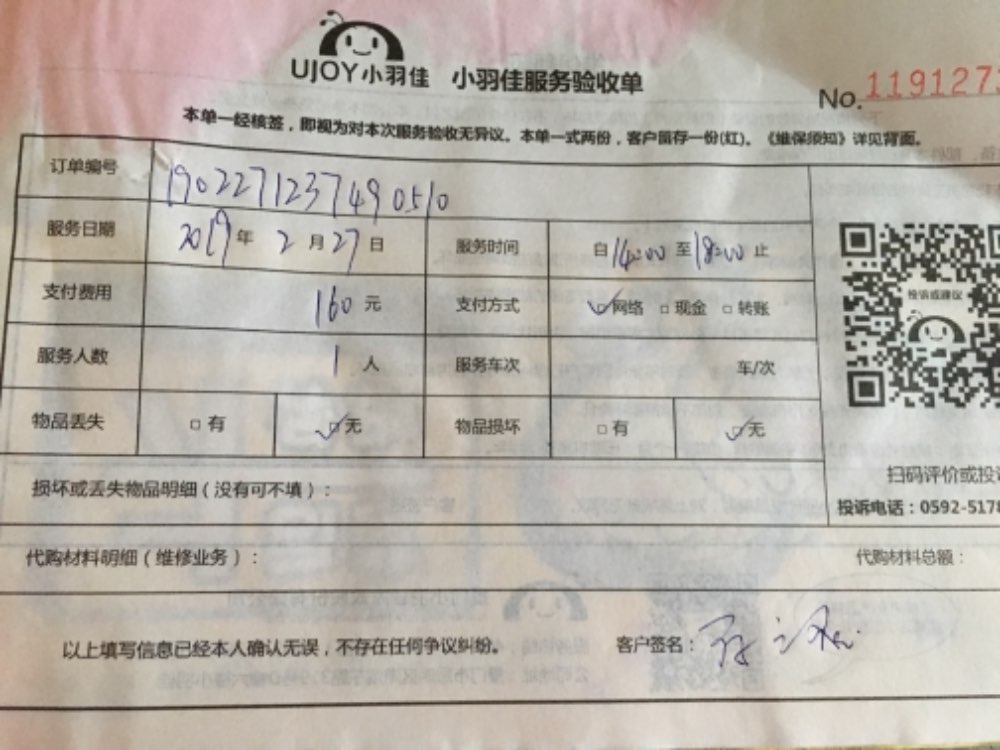 UJOY小羽佳 小羽佳服务验收单
No. 1191273
本单一经核签，即视为对本次服务验收无异议。本单一式两份，客户留存一份(红)。《维保须知》详见背面。
订单编号 190227123749 0510
服务日期 2019年 2月27日 服务时间 自14:00至18:00止
支付费用 160元 支付方式 网络 现金 转账
投诉或建议
服务人数 1人 服务车次 车/次
物品丢失 有 无 物品损坏 有 无
扫码评价或投
损坏或丢失物品明细（没有可不填）：
投诉电话：0592-5178
代购材料明细（维修业务）： 代购材料总额：
以上填写信息已经本人确认无误，不存在任何争议纠纷。 客户签名：